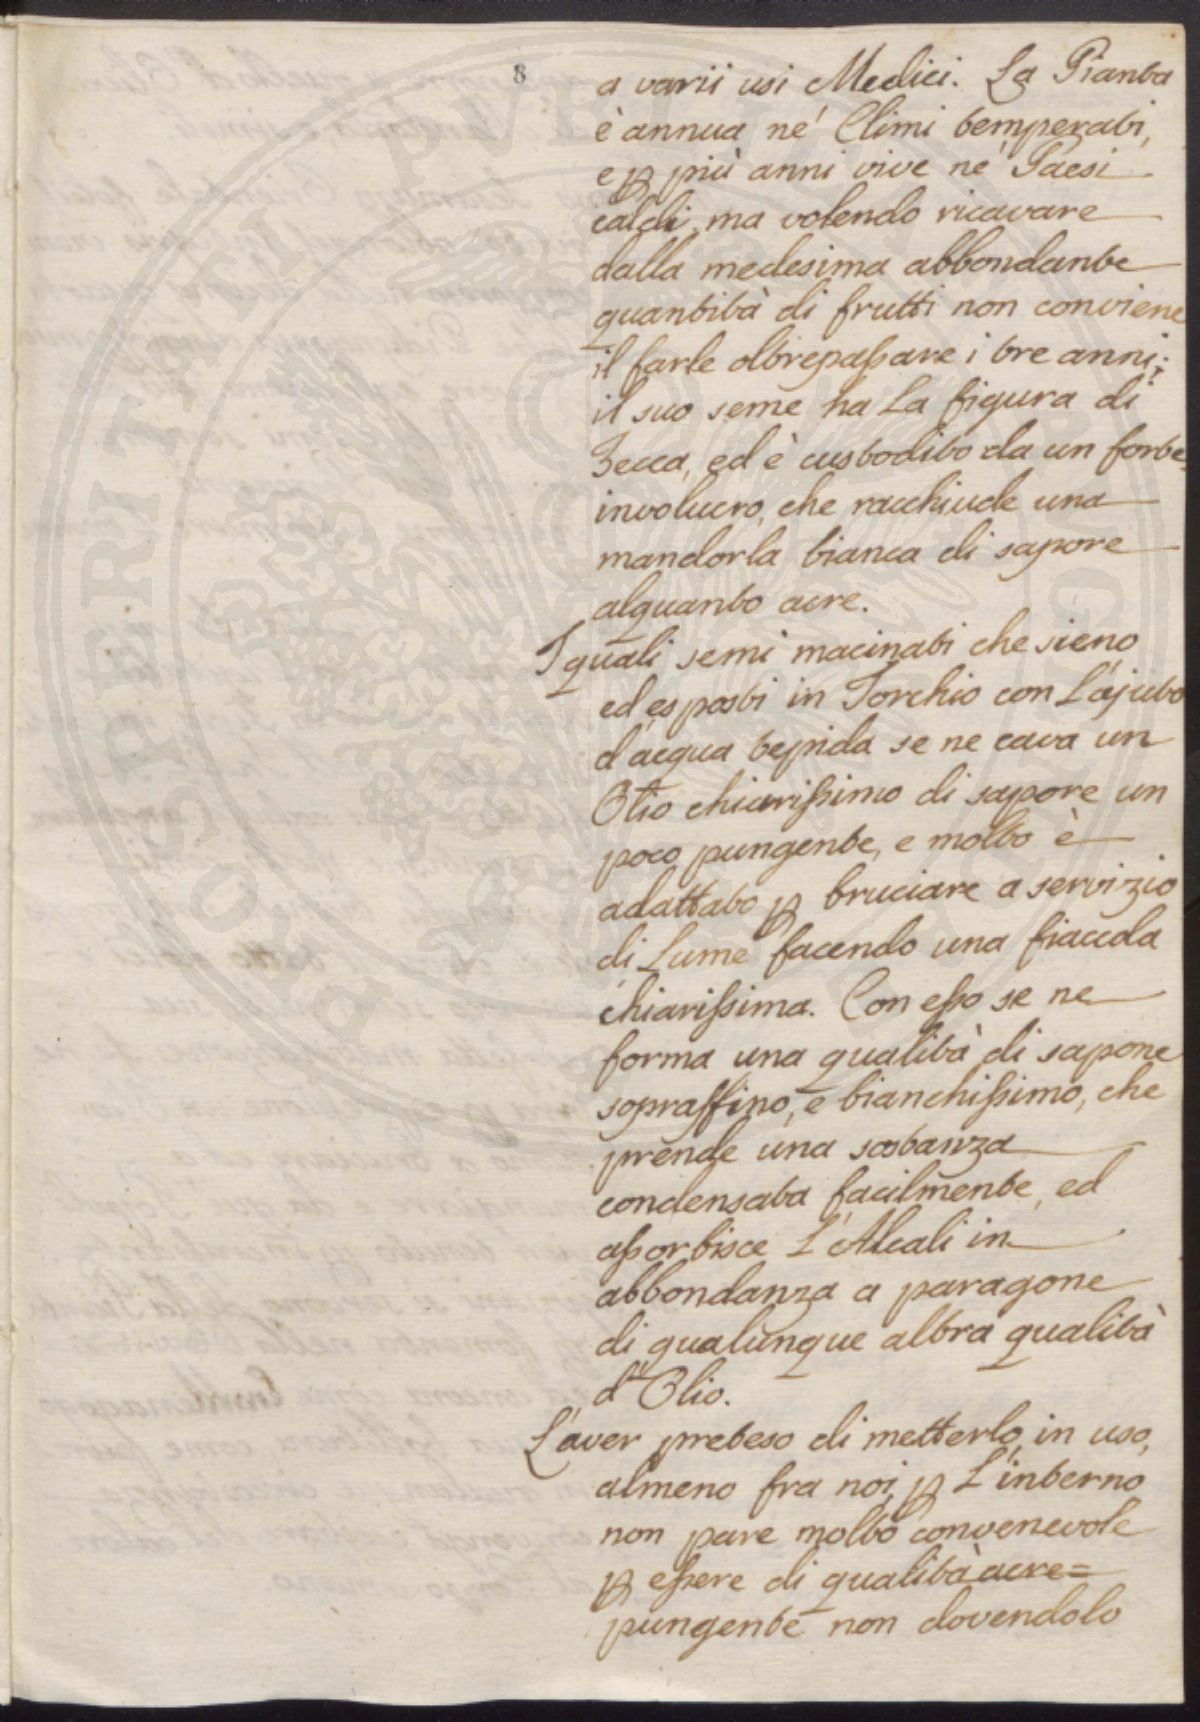 8
a varii usi Medici. La Pianta
è annua ne' Climi temperati,
e p più anni vive ne' Paesi
caldi, ma volendo ricavare
dalla medesima abbondante
quantità di frutti non conviene
il farle oltrepassare i tre anni;
il suo seme ha La figura di
Zecca, ed è custodito da un forte
involucro, che racchiude una
mandorla bianca di sapore
alquanto acre.
I quali semi macinati che sieno
ed esposti in Torchio con L'ajuto
d'acqua tepida se ne cava un
Olio chiarissimo di sapore un
poco pungente, e molto è
adattato p bruciare a servizio
di Lume facendo una fiaccola
chiarissima. Con esso se ne
forma una qualità di sapone
sopraffino, e bianchissimo, che
prende una sostanza
condensata facilmente, ed
assorbisce L'Alcali in
abbondanza a paragone
di qualunque altra qualità
d'Olio.
L'aver preteso di metterlo in uso,
almeno fra noi, p L'interno
non pare molto convenevole
p essere di qualità acre=
pungente non dovendolo
PROSPERITATI PVBLICAE AVGENDAE